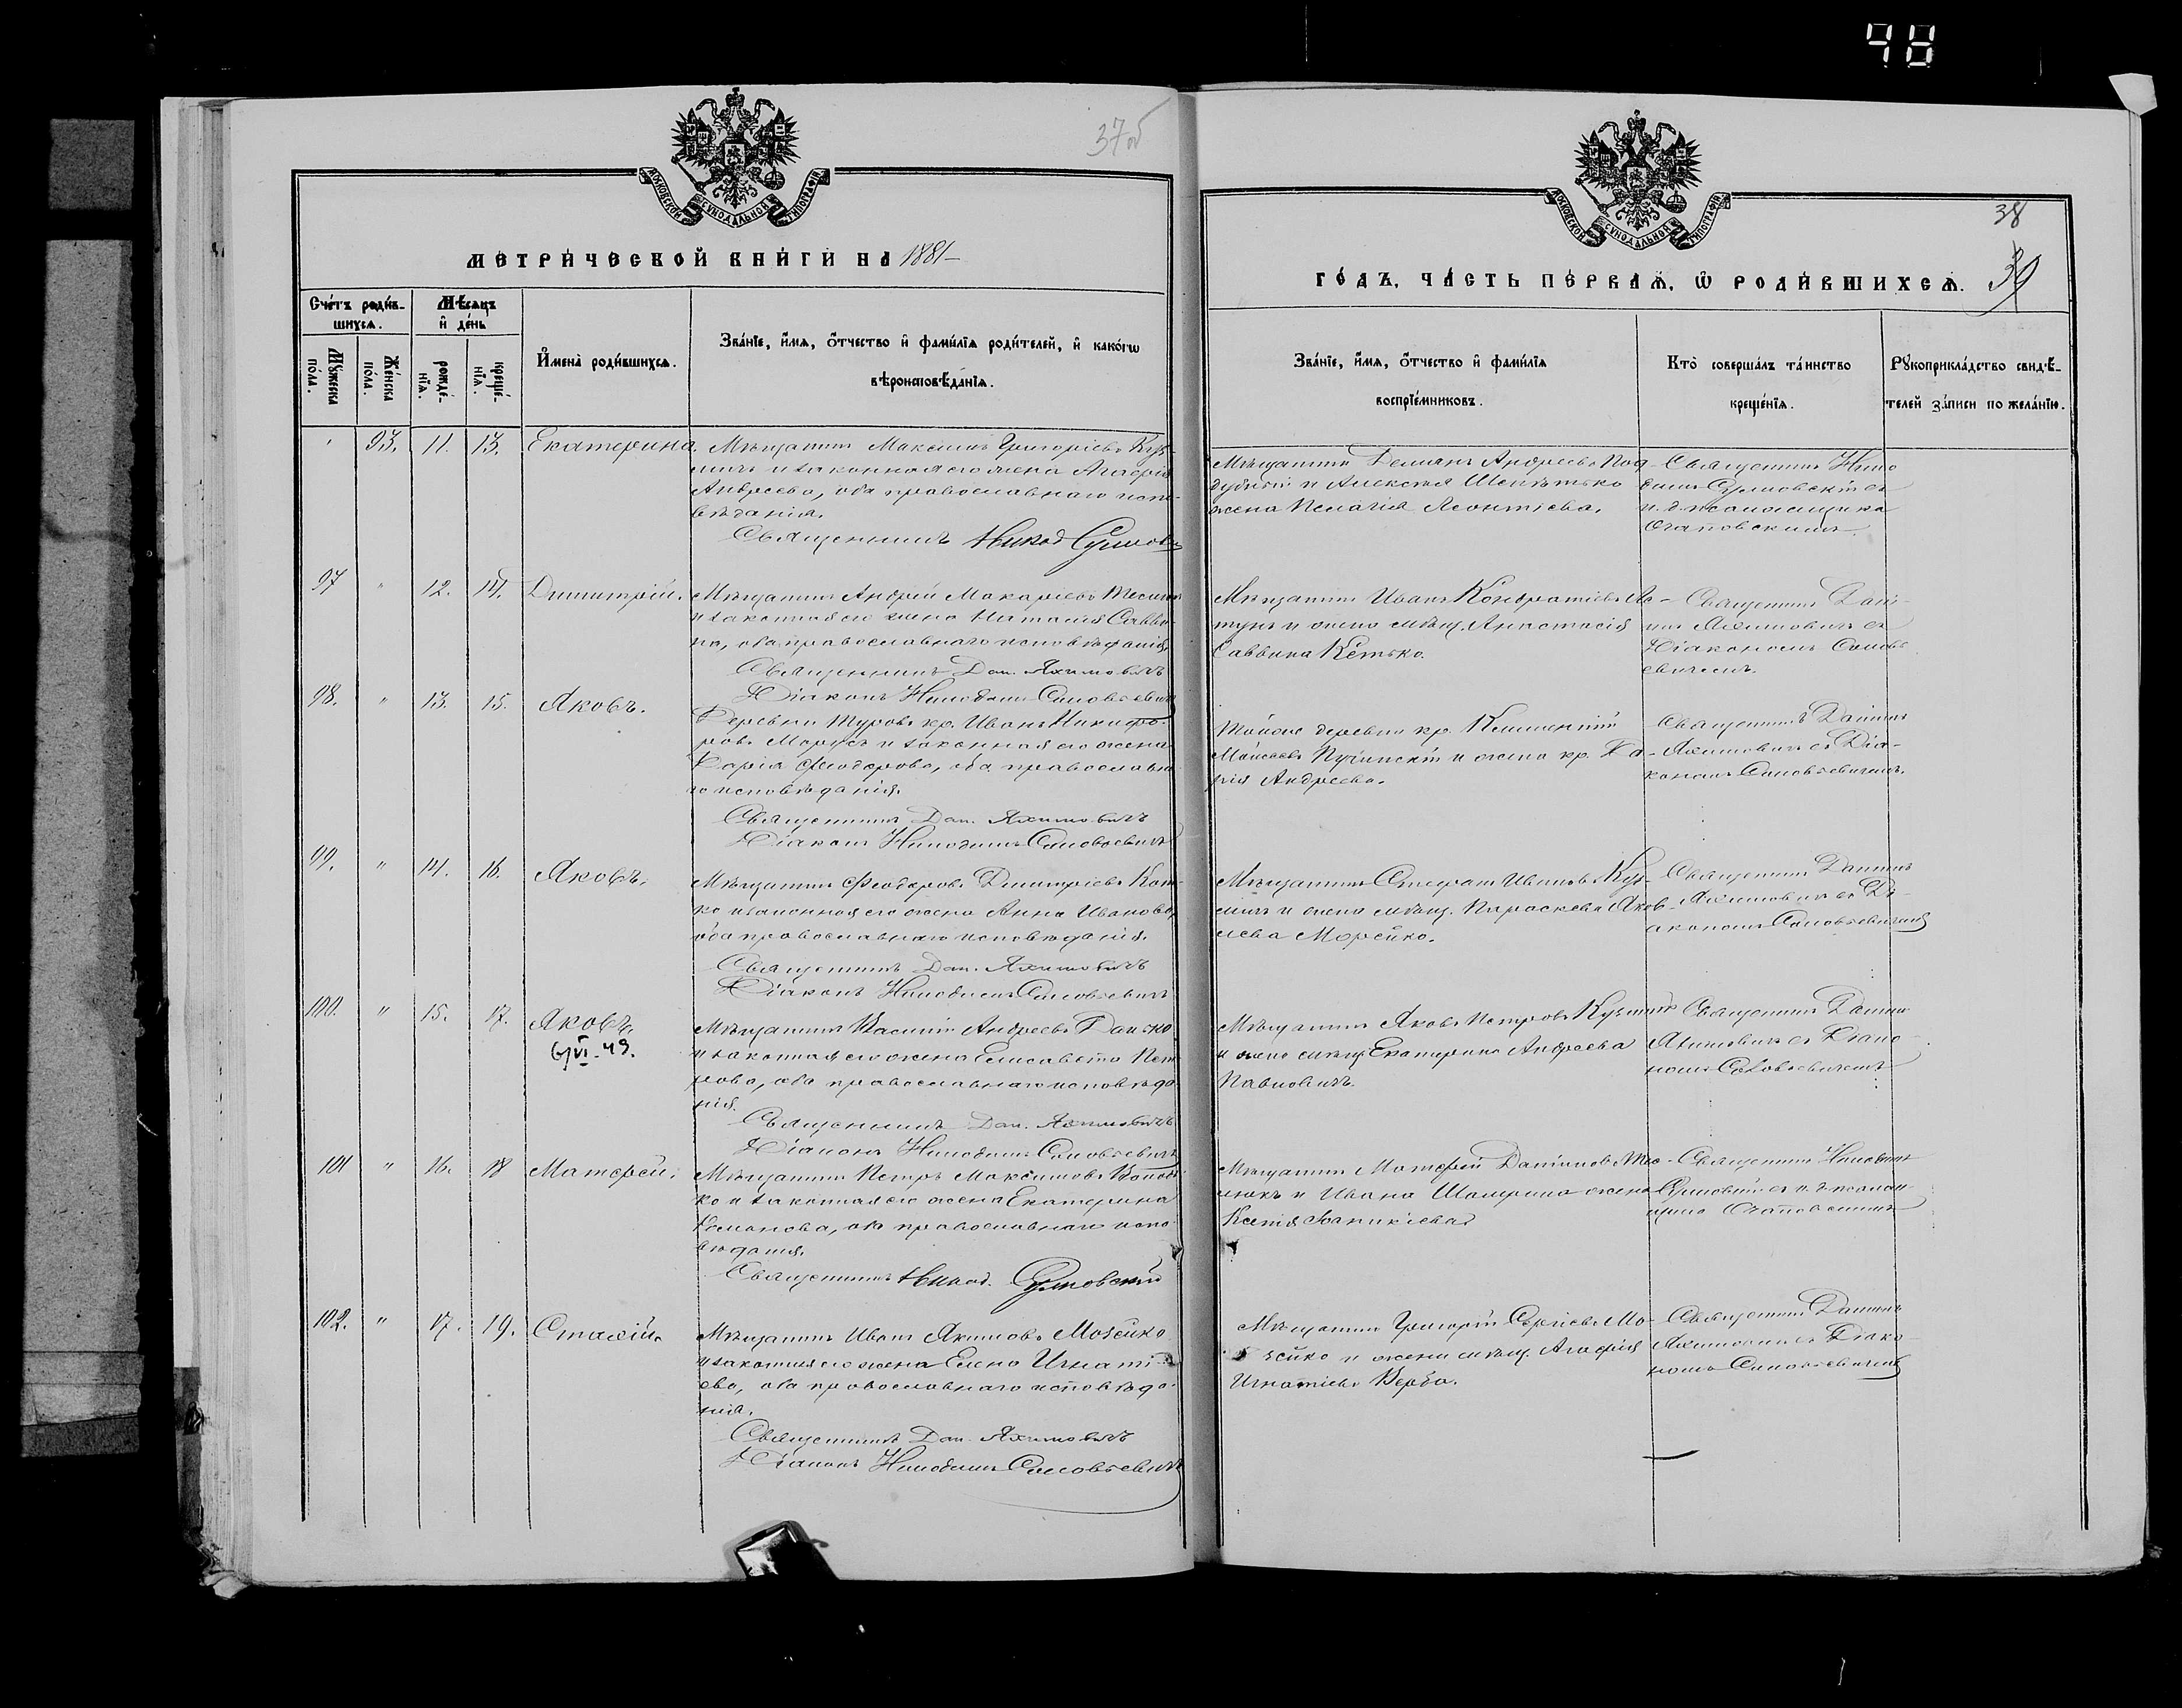 98
37об
38
39
МОСКОВСКОЙ СѴНОДАЛЬНОЙ ТИПОГРАФІИ
МОСКОВСКОЙ СѴНОДАЛЬНОЙ ТИПОГРАФІИ
МЕТРИ́ЧЕСКОЙ КНИ́ГИ НА 1881
ГО́ДЪ, ЧА́СТЬ ПЕ́РВАЯ, Ѿ РОДИ́ВШИХСЯ.
Сче́тъ роди́в-
шихся.
Мѣ́сяцъ
и де́нь
Мꙋ́жеска
по́ла.
Же́нска
по́ла.
рожде́-
нія.
креще́-
нія.
И҆мена̀ роди́вшихся.
Зва́ніе, и҆́мя, ѻ҆́тчество и҆ фами́лія роди́телей, и҆ како́гѡ
вѣроисповѣ́данія.
Зва́ніе, и҆́мя, ѻ҆́тчество и҆ фами́лія
воспріе́мниковъ.
Кто̀ соверша́лъ та́инство
креще́нія.
Рꙋкоприкла́дство свидѣ́-
телей за́писи по жела́нію.
93. 11. 13. Екатерина.
Мѣщанинъ Максимъ Григоріевъ Куз-
мичъ и законная его жена Агафія
Андреева, оба православнаго испо-
вѣданія.
Священникъ Никод
Мѣщанинъ Демьянъ Андреевъ Под-
дубный и Алексѣя жена Пелагія Леонтіева.
Священникъ Нико-
димъ съ
и. д. псаломщика
97 " 12. 14. Димитрій.
Мѣщанинъ Андрей Макаріевъ
и законная его жена Наталія Савви-
на, оба православнаго исповѣданія.
Священникъ Дан. Яхимовичъ
Діаконъ Никодимъ Соловьевичъ
Мѣщанинъ Иванъ Кондратіевъ
и жена мѣщ. Анастасія
Саввина
Священникъ Дані-
илъ Яхимовичъ съ
Діакономъ Соловь-
евичемъ.
98. " 13. 15. Яковъ.
Деревни Туровъ кр. Иванъ Никифо-
ровъ и законная его жена
Дарія Ѳеодорова, оба православна-
го исповѣданія.
Священникъ Дан. Яхимовичъ
Діаконъ Никодимъ Соловьевичъ
Тойже деревни кр. Климентій
Моисеевъ и жена кр. Да-
рія Андреева.
Священникъ Даніилъ
Яхимовичъ съ Діа-
кономъ Соловьевичемъ.
99. " 14. 16. Яковъ.
Мѣщанинъ Ѳеодоръ Димитріевъ
и законная его жена Анна Иванова,
оба православнаго исповѣданія.
Священникъ Дан. Яхимовичъ
Діаконъ Никодимъ Соловьевичъ
Мѣщанинъ Стефанъ Ивановъ Куз-
мичъ и жена мѣщ. Параскева Яков-
лева Мозейко.
Священникъ Даніилъ
Яхимовичъ съ Ді-
акономъ Соловьевичемъ
100. " 15. 17. Яковъ.
6/VI-49.
Мѣщанинъ Василій Андреевъ Данько
и законная его жена Елисавета Пет-
рова, оба православнаго исповѣда-
нія.
Священникъ Дан. Яхимовичъ
Діаконъ Никодимъ Соловьевичъ
Мѣщанинъ Яковъ Петровъ Кузмичъ
и жена мѣщ. Екатерина Андреева
Павловичъ.
Священникъ Даніилъ
Яхимовичъ съ Діако-
номъ Соловьевичемъ
101 " 16. 18 Матфей.
Мѣщанинъ Петръ Максимовъ
и законная его жена Екатерина
Романова, оба православнаго испо-
вѣданія.
Священникъ Никод.
Мѣщанинъ Матфей Даніиловъ
и Ивана жена
Ксенія Іоанникіева
Священникъ Никодимъ
съ и. д. псалом-
щика
102. " 17. 19. Стахій.
Мѣщанинъ Иванъ Якимовъ Мозейко
и законная его жена Елена Игнаті-
ева, оба православнаго исповѣда-
нія.
Священникъ Дан. Яхимовичъ
Діаконъ Никодимъ Соловьевичъ
Мѣщанинъ Григорій Сергіевъ Мо-
зейко и жена мѣщ. Агафія
Игнатіева Верба.
Священникъ Даніилъ
Яхимовичъ съ Діако-
номъ Соловьевичемъ